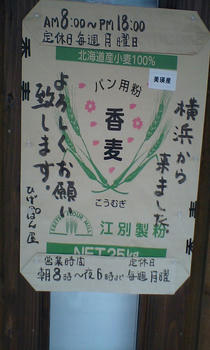 AM8:00～PM18:00
定休日毎週月曜日
北海道産小麦100%
パン用粉
美瑛産
香麦
こうむぎ
横浜から
来ました。
よろしくお願い
致します。
ひげっぽん屋
江別製粉
NET25kg
営業時間 定休日
朝8時～夜6時まで 毎週月曜